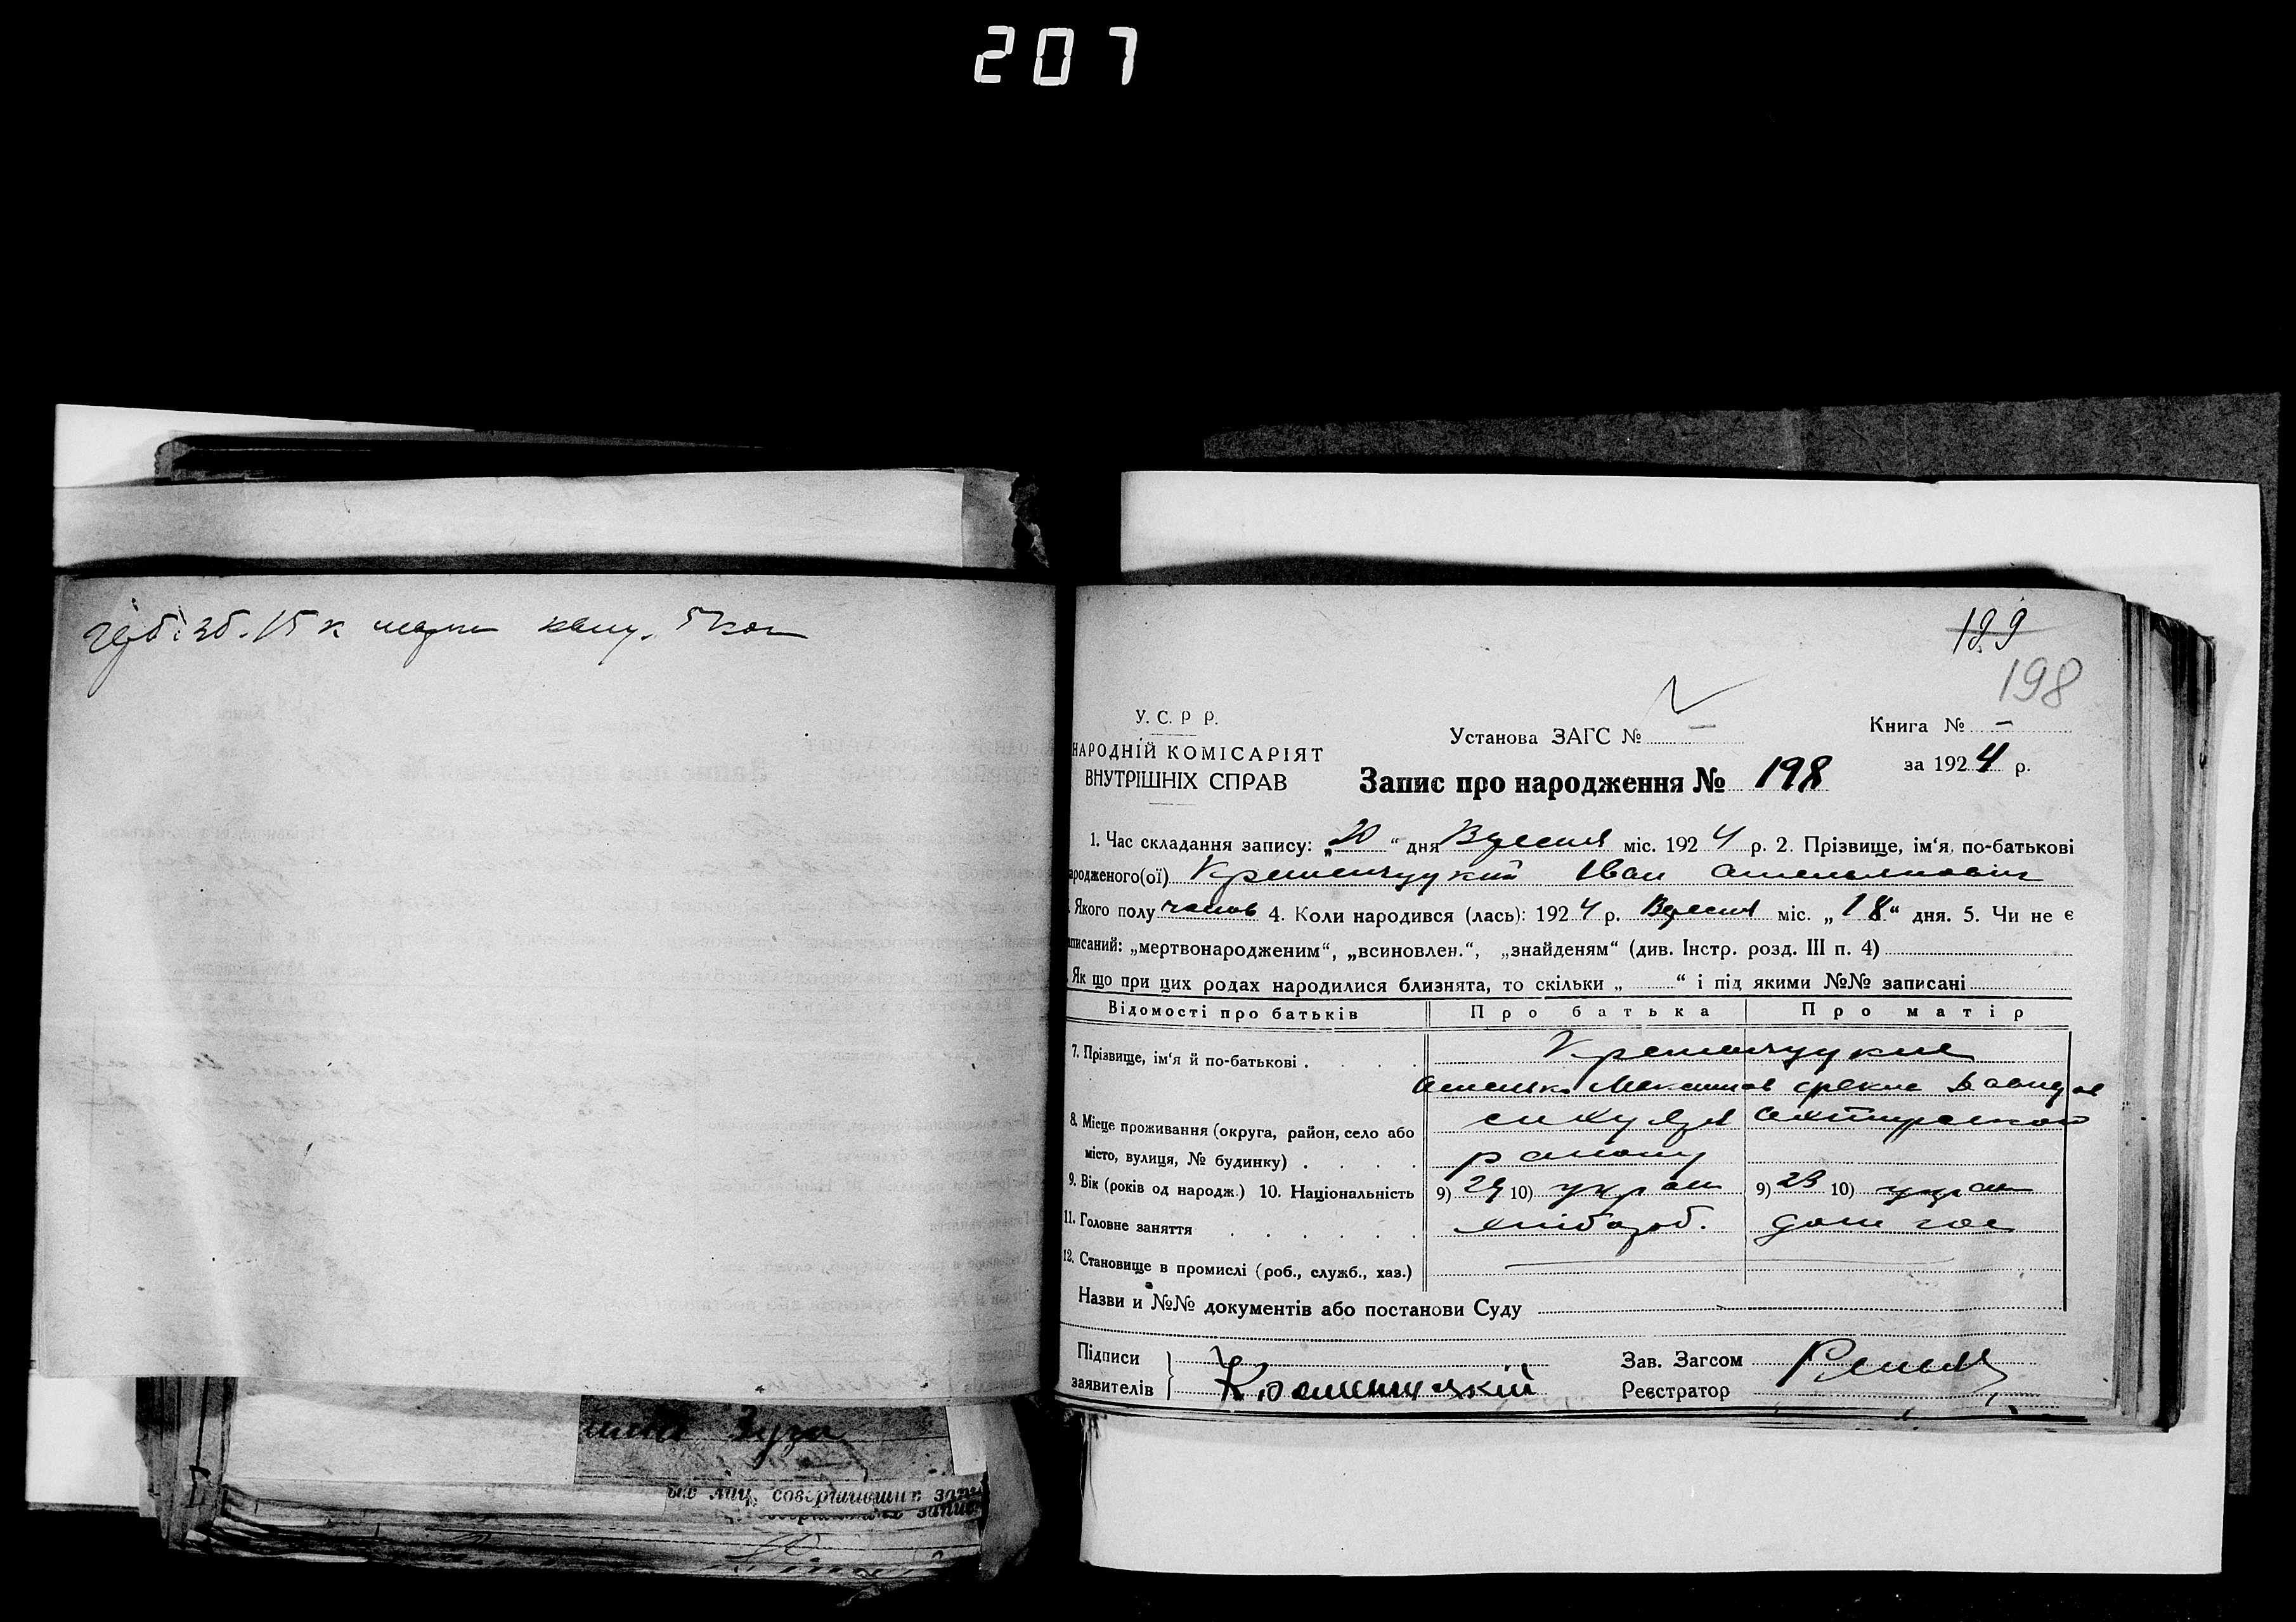 207
зб. 15 к марки канц. 5 коп
189
198
У. С. Р Р.
НАРОДНІЙ КОМІСАРІЯТ
ВНУТРІШНІХ СПРАВ
Установа ЗАГС № —
Книга № —
за 1924 р.
Запис про народження № 198
1. Час складання запису: „20“ дня Вересня міс. 1924 р. 2. Прізвище, ім‘я, по-батькові
ародженого(ої) Кременчуцкий Іван Омелянович
Якого полу чолов 4. Коли народився (лась): 1924 р. Вересня міс. „18“ дня. 5. Чи не є
аписаний: „мертвонародженим“, „всиновлен.“, „знайденям“ (див. Інстр. розд. III п. 4)
Як що при цих родах народилися близнята, то скільки „ “ і під якими №№ записані
Відомості про батьків Про батька Про матір
7. Прізвище, ім‘я й по-батькові . Кременчуцкие
Омелько Максимов Давидов
8. Місце проживання (округа, район, село або
місто, вулиця, № будинку) . району
9. Вік (років од народж.) 10. Національність 9) 29 10) укра 9) 23 10) укра
11. Головне заняття хлібороб. дом гос
12. Становище в промислі (роб., служб., хаз.)
Назви и №№ документів або постанови Суду
Підписи
заявителів Кременчуцкій
Зав. Загсом
Реєстратор
лиц, совершивших запи
запис